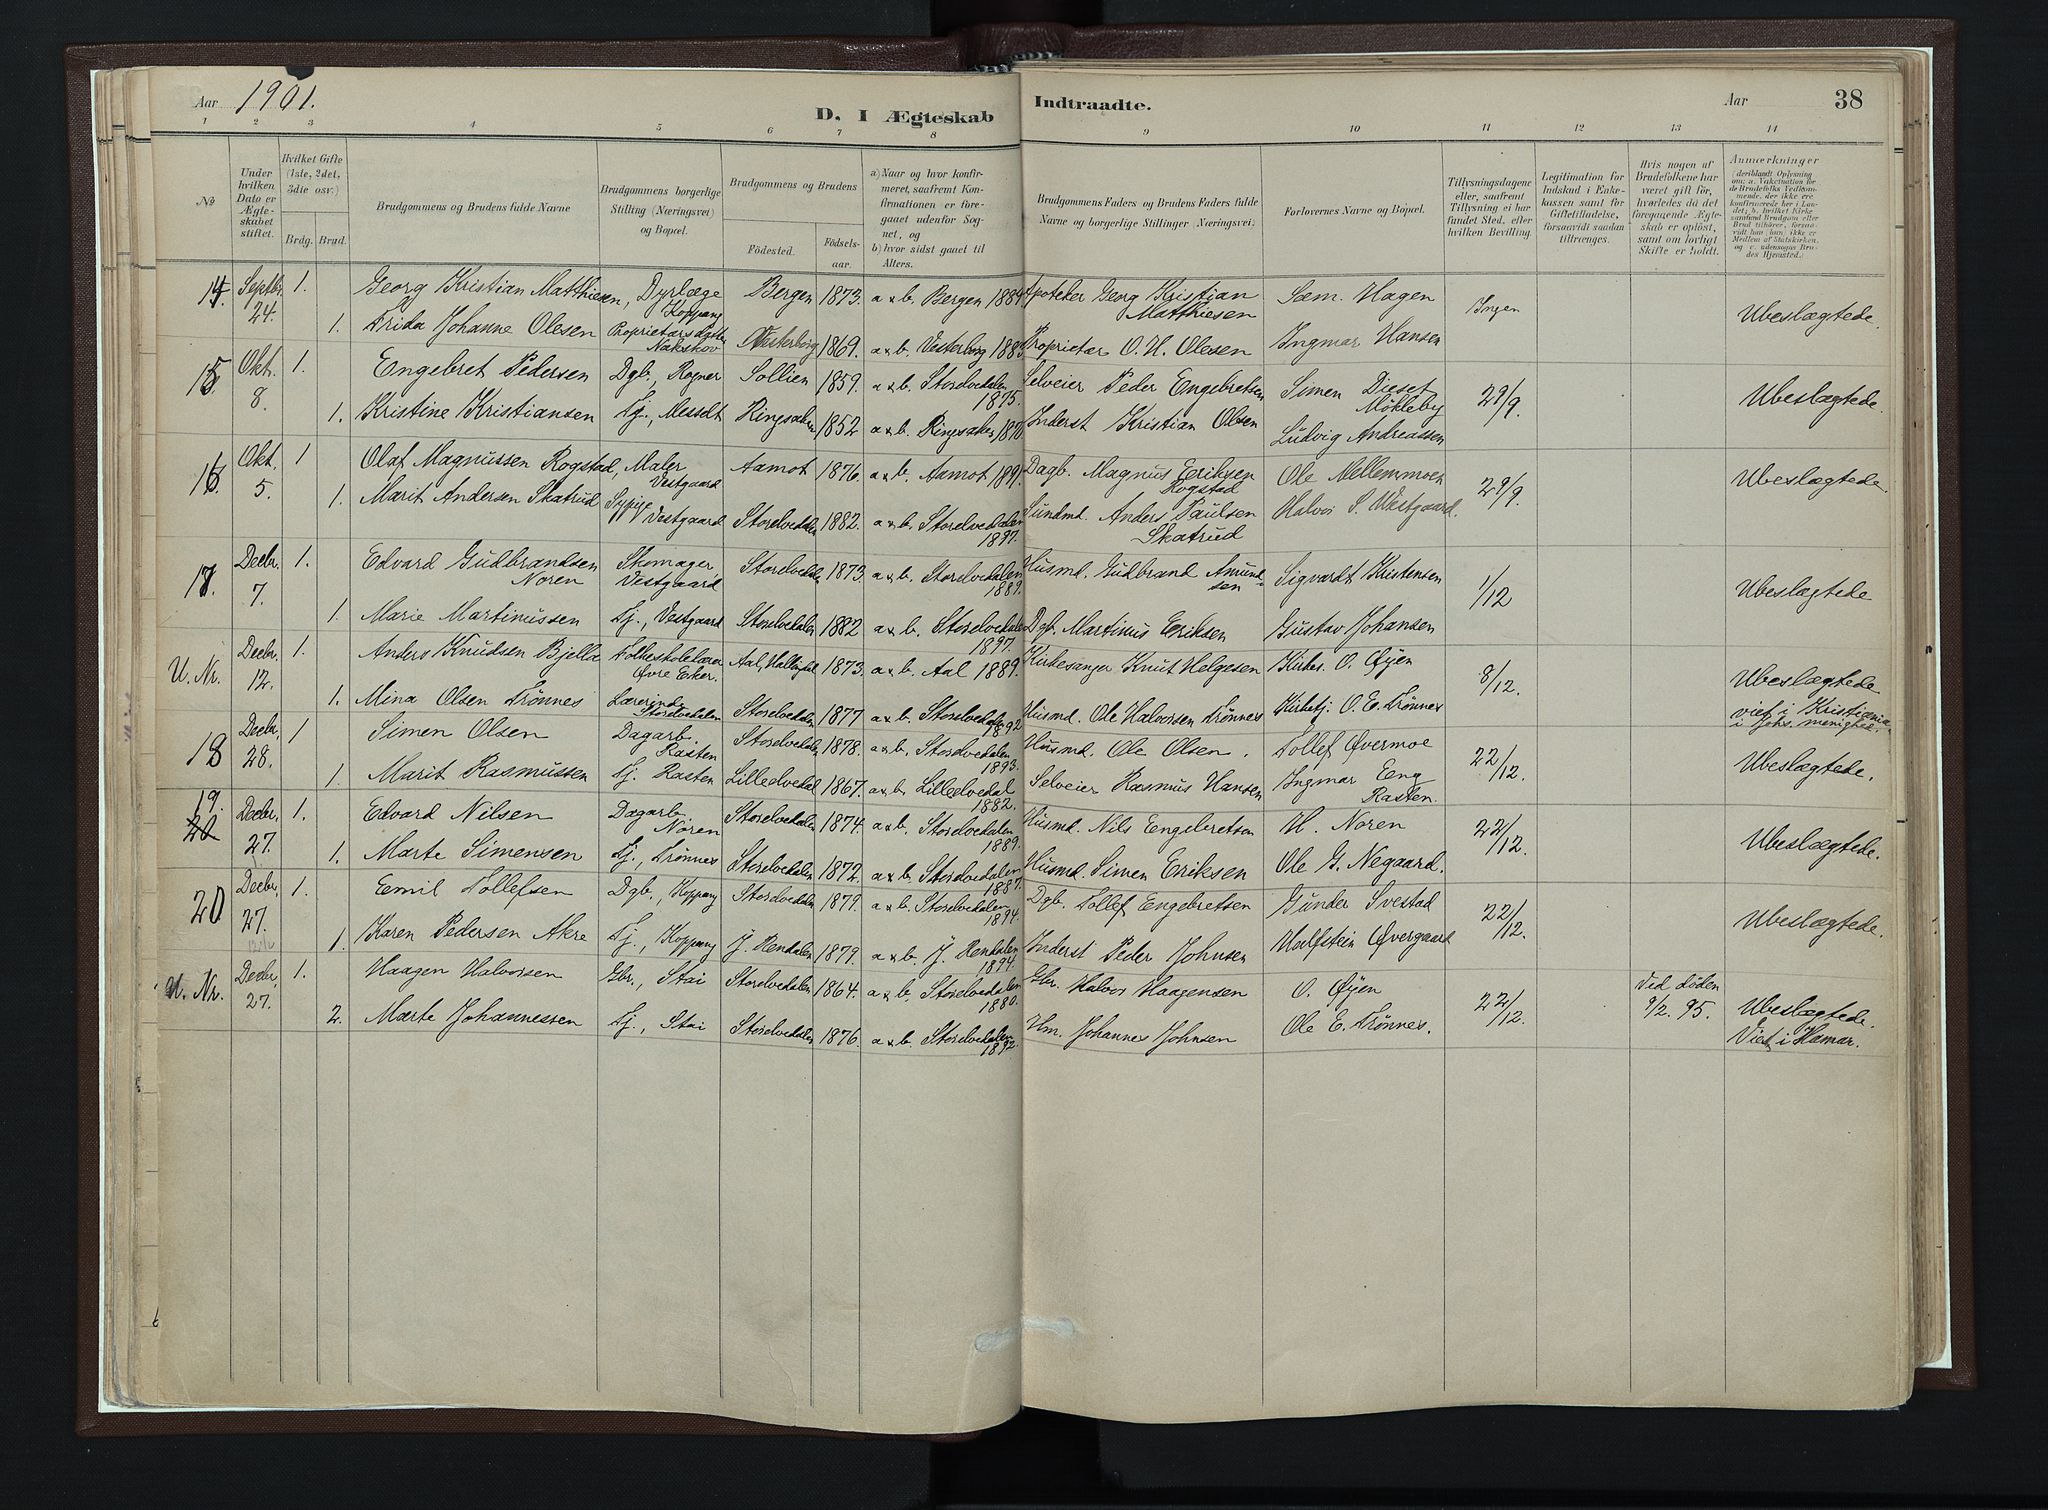 Aar 1901.
D. I Ægteskab Indtraadte.
Aar 38
1 2 3 4 5 6 7 8 9 10 11 12 13 14
№
Under hvilken Dato er Ægteskabet stiftet.
Hvilket Gifte (1ste, 2det, 3die osv.)
Brdg. Brud.
Brudgommens og Brudens fulde Navne
Brudgommens borgerlige Stilling (Næringsvei) og Bopæl.
Brudgommens og Brudens
Födested. Födselsaar.
a) Naar og hvor konfirmeret, saafremt Konfirmationen er foregaaet udenfor Sognet, og
b) hvor sidst gaaet til Alters.
Brudgommens Faders og Brudens Faders fulde Navne og borgerlige Stillinger (Næringsvei).
Forlovernes Navne og Bopæl.
Tillysningsdagene eller, saafremt Tillysning ei har fundet Sted, efter hvilken Bevilling.
Legitimation for Indskud i Enkekassen samt for Giftetilladelse, forsaavidt saadan tiltrenges.
Hvis nogen af Brudefolkene har været gift för, hvorledes da det foregaaende Ægteskab er oplöst, samt om lovligt Skifte er holdt.
Anmerkninger (deriblandt Oplysning om: a. Vakcination for de Brudefolks Vedkommende, der ikke ere konfirmerede her i Landet; b. hvilket Kirkesamfund Brudgom eller Brud tilhörer, forsaavidt han (hun) ikke er Medlem af Statskirken, og c. udensogns Brudes Hjemsted.)
14. Septbr. 24. 1. Georg Kristian Matthiesen, Dyrlæge Koppang Bergen 1873. a & b. Bergen 1889. Apoteker Georg Kristian Matthiesen Sæm. Hagen Ingen Ubeslægtede.
1. Frida Johanne Olesen Proprietærs Nakskov Vesterborg 1869. a & b. Vesterborg Proprietær O. H. Olesen Ingmar Hansen
15. Okt. 8. 1. Engebret Pedersen Dgb., Rogner Sollien 1859. a & b. Storelvedalen 1875. Selveier Peder Engebretsen Simen Dieset Mökleby 29/9. Ubeslægtede.
1. Kristine Kristiansen Tj., Messelt Ringsaker 1852 a & b. Ringsaker Inderst Kristian Olsen Ludvig Andreassen
16. Okt. 5. 1 Olaf Magnussen Rogstad, Maler Vestgaard Aamot 1876. a & b. Aamot 1891. Dagb. Magnus Eriksen Rogstad Ole Mellemmoen 29/9. Ubeslægtede.
1. Marit Andersen Skatrud Sypige Vestgaard Storelvedalen 1882. a & b. Storelvedalen 1897. Sundmd. Anders Paulsen Skatrud Halvor S. Westgaard.
17. Decbr. 7. 1. Edvard Gudbrandsen Noren Skomager Vestgaard Storelvedalen 1873. a & b. Storelvedalen 1889. Husmd. Gudbrand Amundsen Sigvardt Kristensen 1/12 Ubeslægtede
1. Marie Martinussen Tj., Vestgaard Storelvedalen 1882 a & b. Storelvedalen 1897. Dgb. Martinus Eriksen Gustav Johansen
U. Nr. Decbr. 12. 1. Anders Knudsen Bjella Folkeskolelærer Øvre Eker. Aal, Hallingdal 1873. a & b. Aal 1889. Kirkesanger Knut Helgesen Kirkes. O. Øyen 8/12. Ubeslægtede
1. Mina Olsen Trönnes Lærerinde Storelvedalen Storelvedalen 1877 a & b. Storelvedalen 1892 Husmd. Ole Halvorsen Trönnes Kirketj. O. E. Trönnes viet i Kristiania i Johs. menighed.
18 Decbr. 28. 1 Simen Olsen Dagarb. Rasten Storelvedalen 1878. a & b. Storelvedalen 1893. Husmd. Ole Olsen. Tollef Övermoe 22/12. Ubeslægtede.
1. Marit Rasmussen Tj. Rasten Lilleelvedal 1867. a & b. Lilleelvedal 1882. Selveier Rasmus Hansen Ingmar Eeng Rasten.
19. 20 Decbr. 27. 1. Edvard Nilsen Dagarb. Noren Storelvedalen 1874. a & b. Storelvedalen 1889. Husmd. Nils Engebretsen H. Noren 22/12. Ubeslægtede.
1. Marte Simensen Tj., Trönnes Storelvedalen 1872. a & b. Storelvedalen 1887. Husmd. Simen Eriksen Ole G. Negaard.
20 Decbr. 27. 1. Emil Tollefsen Dgb., Koppang Storelvedalen 1879. a & b. Storelvedalen 1894. Dgb. Tollef Engebretsen Gunder Svestad 22/12. Ubeslægtede.
1. Karen Pedersen Akre Tj., Koppang Y. Rendalen 1879. a & b. Y. Rendalen 1894 Inderst Peder Johnsen Halfstein Övergaard
U. Nr. Decbr. 27. 1. Haagen Halvorsen Gbr., Stai Storelvedalen 1864. a & b. Storelvedalen 1880. Gbr. Halvor Haagensen O. Øyen 22/12. Ved Döden 9/2. 95. Ubeslægtede.
2. Marte Johannessen Tj., Stai Storelvedalen 1876. a & b. Storelvedalen 1892. Hm. Johannes Johnsen Ole E. Trönnes. Viet i Hamar.